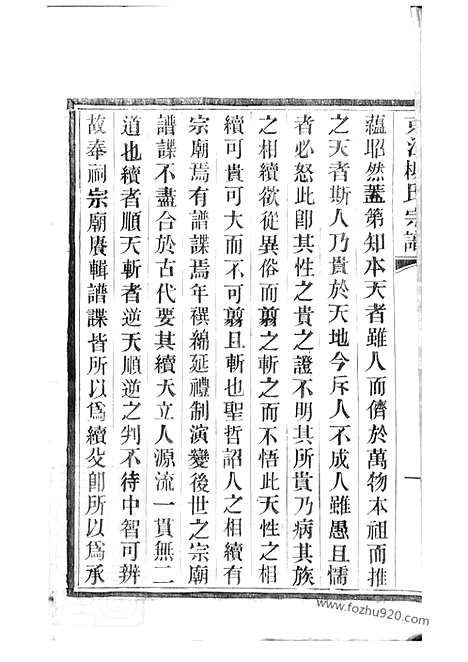 蘊昭然蓋第知本天者雖人而儕於萬物本祖而推
之天者斯人乃貴於天地今斥人不成人雖愚且懦
者必怒此卽其性之貴之證不明其所貴乃病其族
之相續欲從異俗而翦之斬之而不悟此天性之相
續可貴可大而不可翦且斬也聖哲詔人之相續有
宗廟焉有譜諜焉年禩綿延禮制演變後世之宗廟
譜諜不盡合於古代要其續天立人源流一貫無二
道也續者順天斬者逆天順逆之判不待中智可辨
故奉祠宗廟賡輯譜諜皆所以爲續殳卽所以爲承
www.fozhu920.com